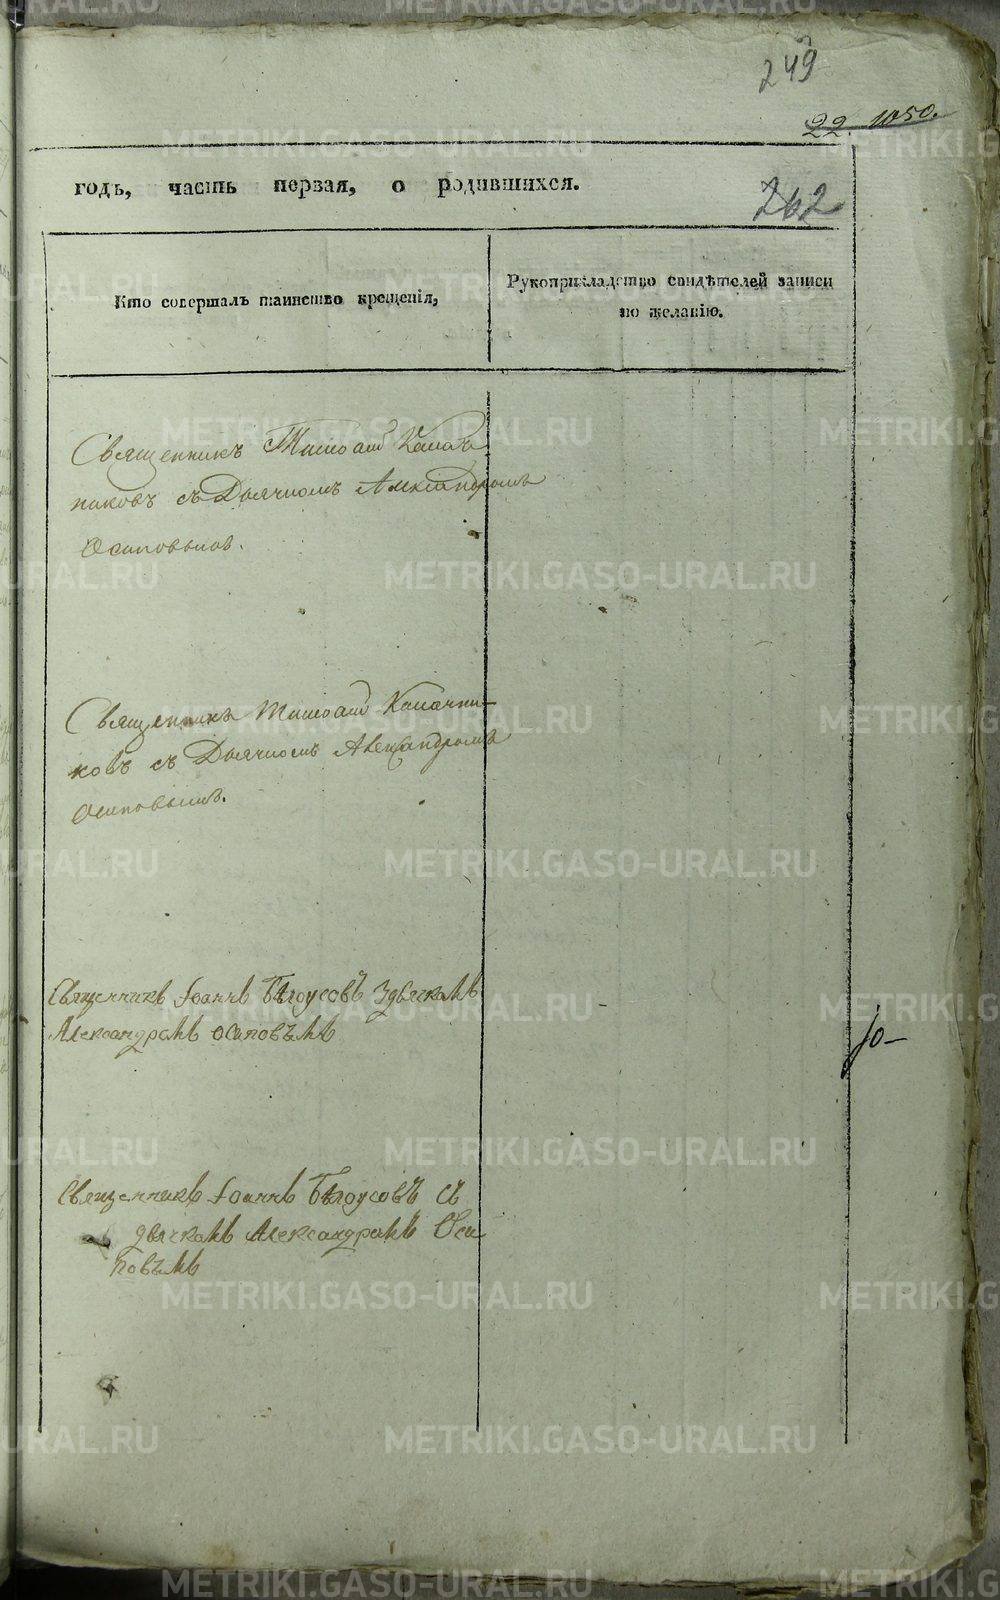 249
22. 1050.
годъ, часть первая, о родившихся.
262
Кто совершалъ таинство крещенія,
Рукоприкладство свидѣтелей записи
по желанію.
Священникъ
никовъ съ Дьячкомъ Александромъ
Осиповымъ.
Священникъ Калачни-
ковъ съ Дьячкомъ Александромъ
Осиповымъ.
Священникъ Іоаннъ Бѣлоусовъ Здьячкомъ
Александромъ осиповъмъ
10-
Священникъ Іоаннъ Бѣлоусовъ съ
дьячкомъ Александромъ Оси
повъмъ
METRIKI.GASO-URAL.RU